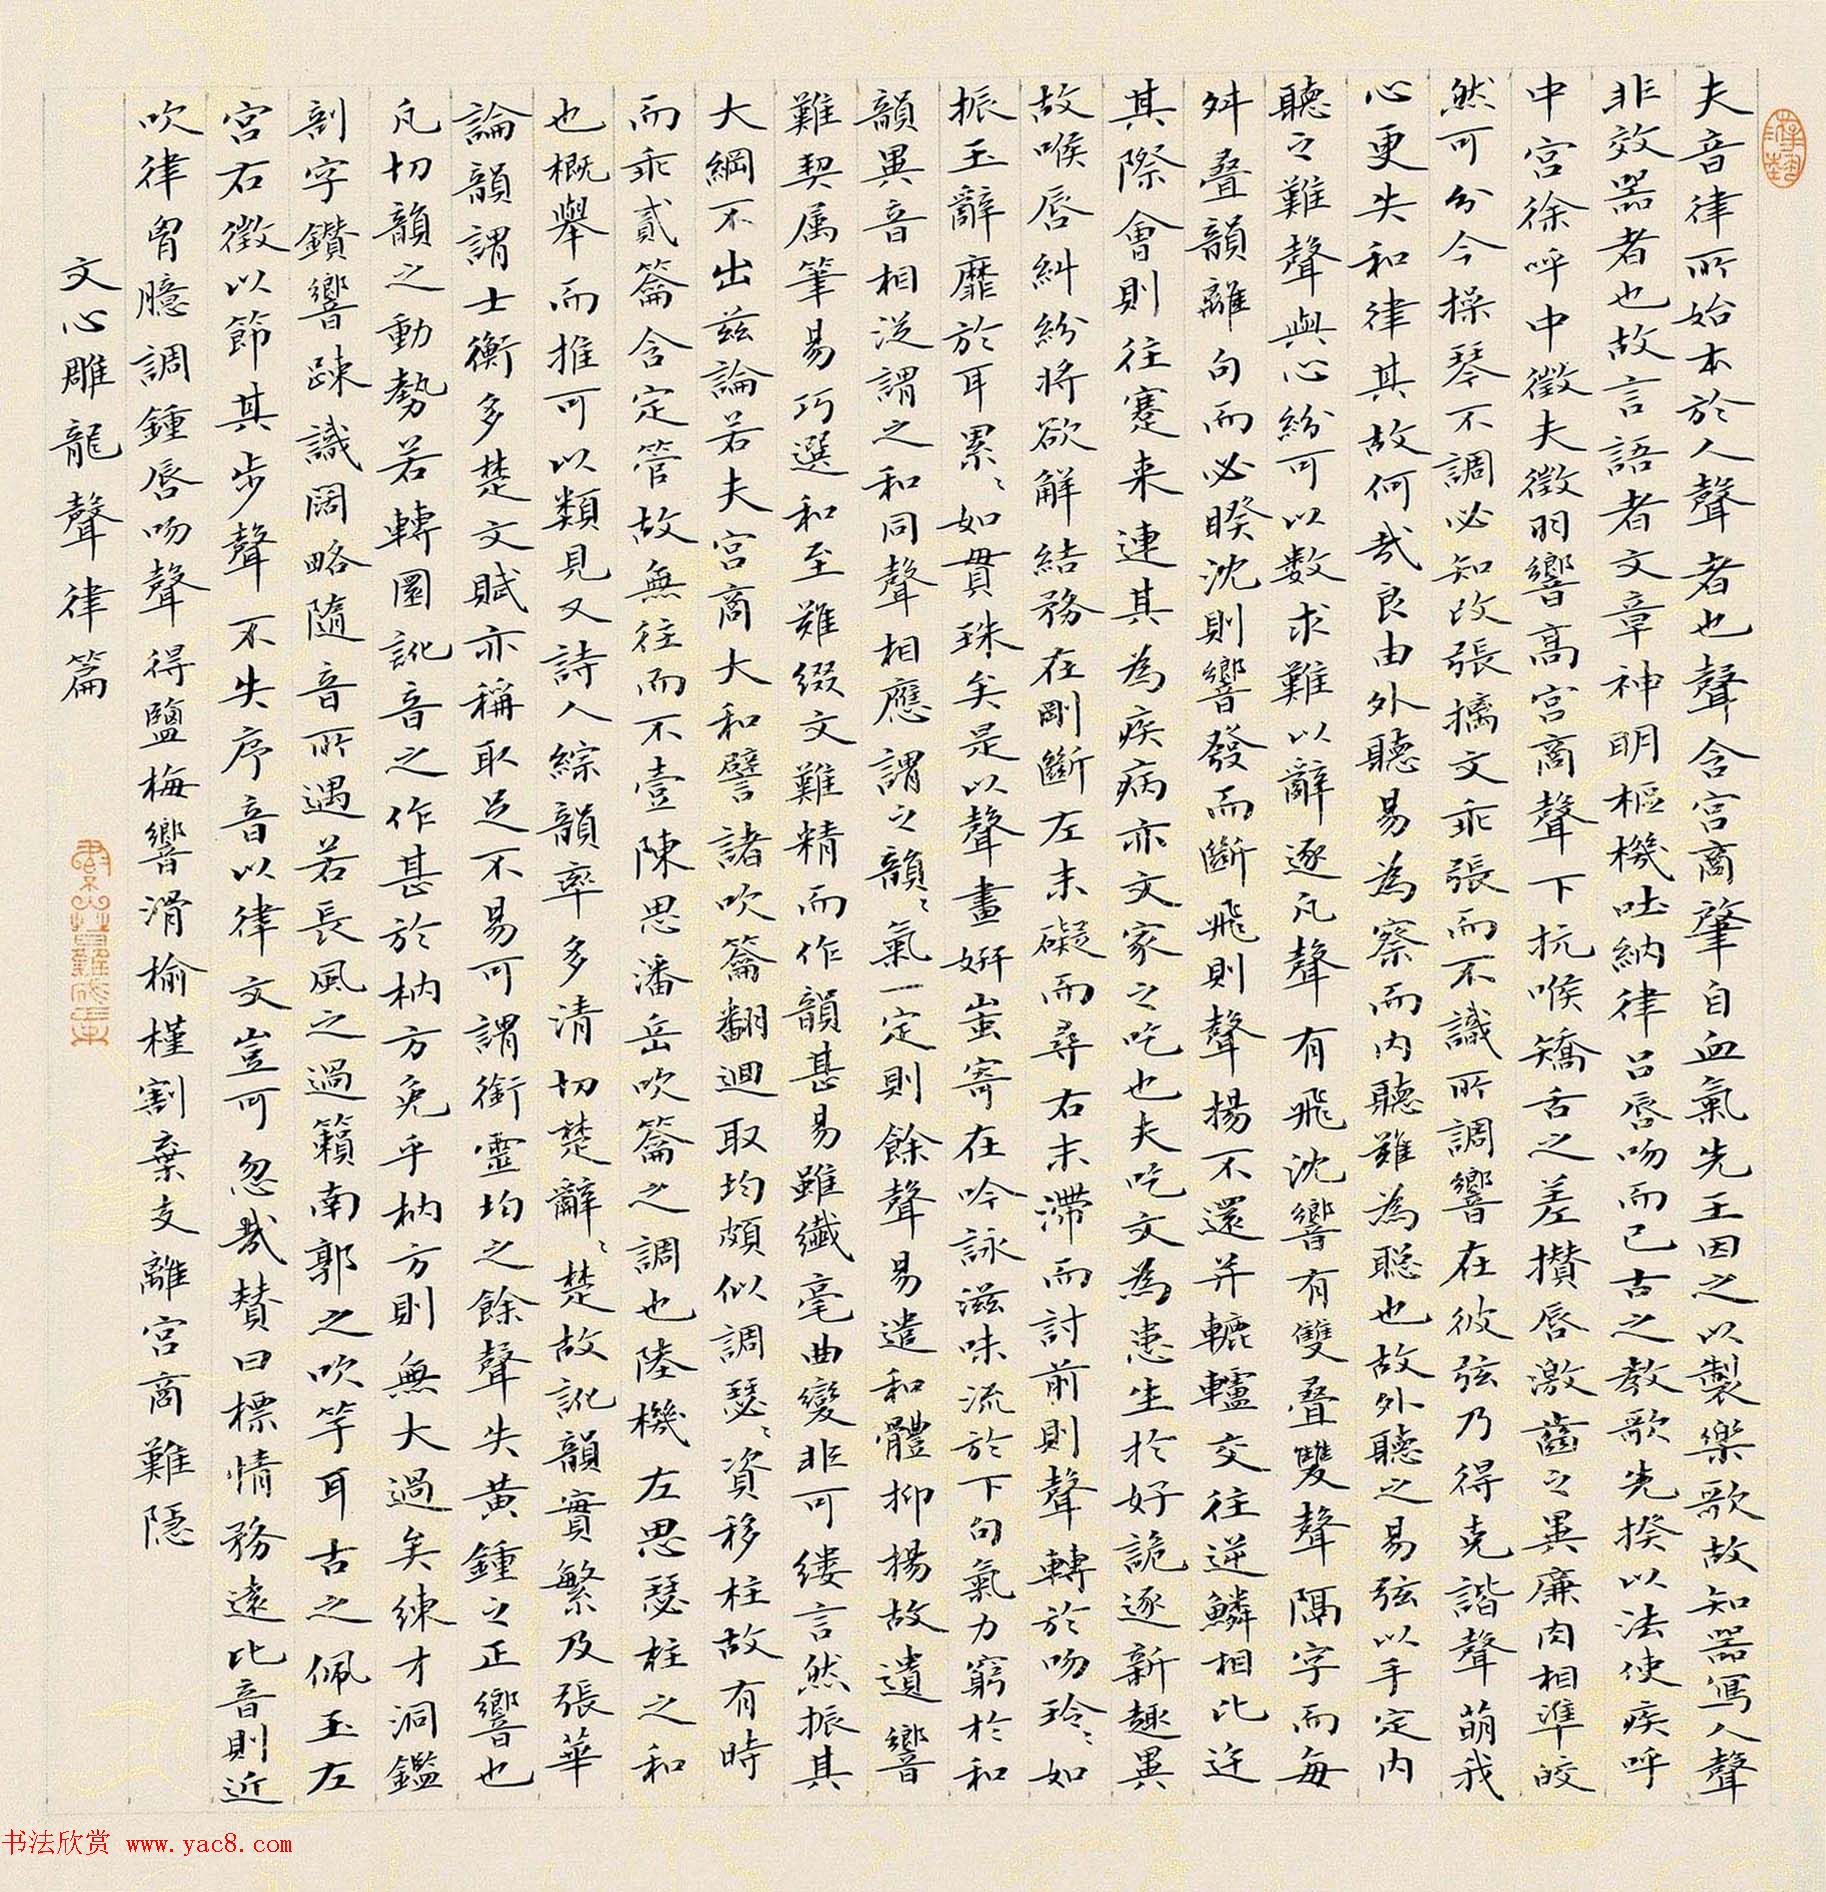 夫音律所始本於人聲者也聲含宮商肇自血氣先王因之以製樂歌故知器寫人聲
非效器者也故言語者文章神明樞機吐納律呂唇吻而已古之教歌先揆以法使疾呼
中宮徐呼中徵夫徵羽響高宮商聲下抗喉矯舌之差攢唇激齒之異廉肉相準皎
然可分今操琴不調必知改張摛文乖張而不識所調響在彼弦乃得克諧聲萌我
心更失和律其故何哉良由外聽易為察而內聽難為聰也故外聽之易弦以手定內
聽之難聲與心紛可以數求難以辭逐凡聲有飛沈響有雙疊雙聲隔字而每
舛疊韻離句而必睽沈則響發而斷飛則聲揚不還并轆轤交往逆鱗相比迕
其際會則往蹇来連其為疾病亦文家之吃也夫吃文為患生於好詭逐新趣異
故喉唇糾紛將欲解結務在剛斷左末礙而尋右末滯而討前則聲轉於吻玲〻如
振玉辭靡於耳累〻如貫珠矣是以聲畫妍蚩寄在吟詠滋味流於下句氣力窮於和
韻異音相從謂之和同聲相應謂之韻〻氣一定則餘聲易遣和體抑揚故遺響
難契属筆易巧選和至難綴文難精而作韻甚易雖纖毫曲變非可縷言然振其
大綱不出茲論若夫宮商大和譬諸吹籥翻迴取均頗似調瑟〻資移柱故有時
而乖貳籥含定管故無往而不壹陳思潘岳吹籥之調也陸機左思瑟柱之和
也概舉而推可以類見又詩人綜韻率多清切楚辭〻楚故訛韻實繁及張華
論韻謂士衡多楚文賦亦稱取足不易可謂銜靈均之餘聲失黃鍾之正響也
凡切韻之動勢若轉圜訛音之作甚於枘方免乎枘方則無大過矣練才洞鑑
剖字鑽響疎識闊略隨音所遇若長風之過籟南郭之吹竽耳古之佩玉左
宮右徵以節其步聲不失序音以律文豈可忽哉贊曰標情務遠比音則近
吹律胷臆調鍾唇吻聲得鹽梅響滑榆槿割棄支離宮商難隱
文心雕龍聲律篇
书法欣赏 www.yac8.com